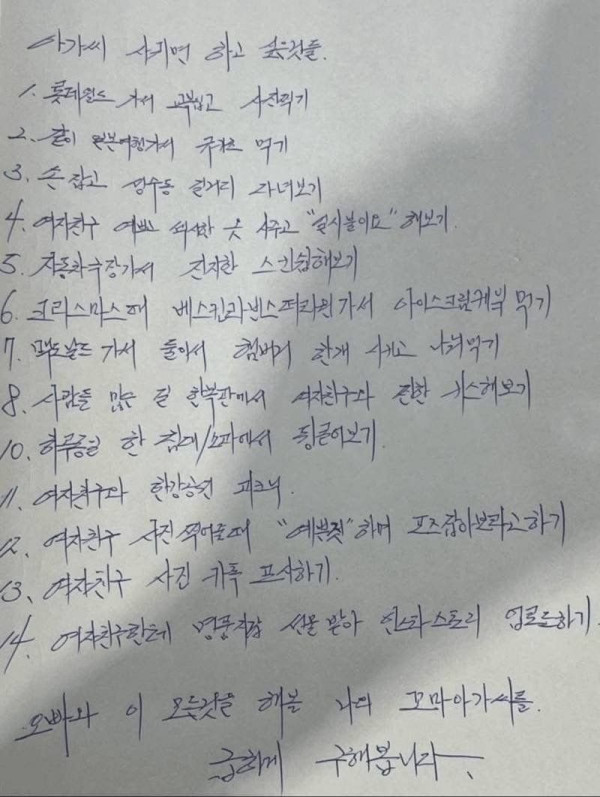 아가씨 사귀면 하고 싶은것들.
1. 롯데월드 가서 교복입고 사진찍기
2. 같이 일본여행가서 규카츠 먹기
3. 손 잡고 성수동 길거리 다녀보기
4. 여자친구 예쁘 섹시한 옷 사주고 "일시불이요" 해보기.
5. 자동차극장가서 진지한 스킨쉽해보기
6. 크리스마스때 베스킨라빈스떠리원가서 아이스크림케익 먹기
7. 맥도날드 가서 둘이서 햄버거 한개 시키고 나눠먹기
8. 사람들 많은 길 한복판에서 여자친구와 진한 키스해보기
10. 하루종일 한 침대/소파에서 뒹굴어보기.
11. 여자친구와 한강공원 피크닉.
12. 여자친구 사진 찍어줄때 "예쁜짓" 하며 포즈잡아보라고하기
13. 여자친구 사진 카톡 프사하기.
14. 여자친구한테 명품지갑 선물 받아 인스타스토리 업로드하기.
오빠와 이 모든것을 해볼 나의 꼬마아가씨를.
급하게 구해봅니다